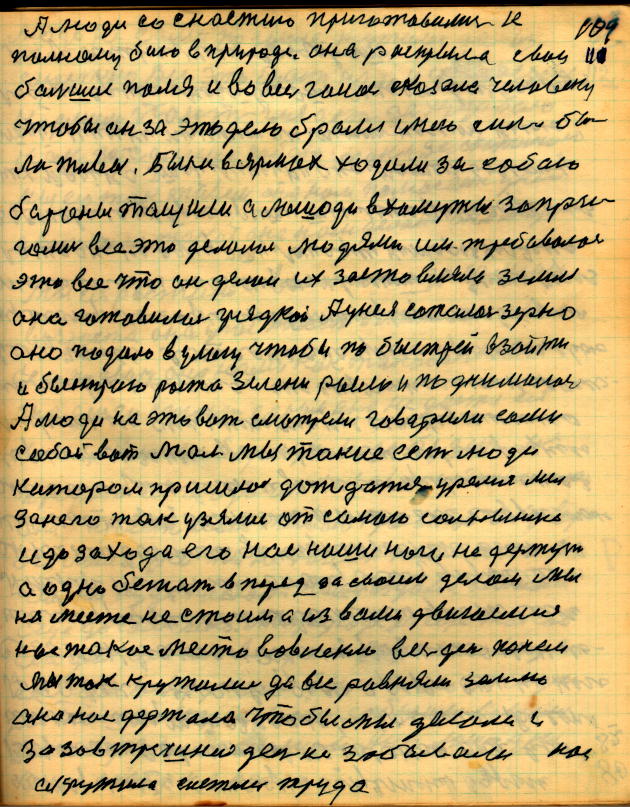 А люди со снастию приготовилис к 109
полному бою в природе. она раскрыла свои 111
большие поля и во весь голос сказала человеку
чтобы он за это дело брались мною
Быки в ярмах ходили за собою
бароны тащили а лошади в хомуты запряг
гали все это делали людями им требовалос
это все что он делал их заставляла земля
она готовилас грядкой А у нея осталос зерно
оно подало в улагу чтобы по быстрей взойти
и быстраго роста Зелени рясло и поднималос
А люди на это вот смотрели говорили сами
собой вот мол мы такие есть люди
котором пришлос дождатся уремя мы
за него так узялис от самого солнышка
и до захода его нас наши ноги не держут
а одно бежат в перед за своим делом мы
на месте не стоим а из вами двигаемся
нас такое место вовлекло весь ден конем
мы так кружилис да все равняли землю
она нас держала чтобы мы делали и
за завтрешний ден не забывали нас
окружила систем труда